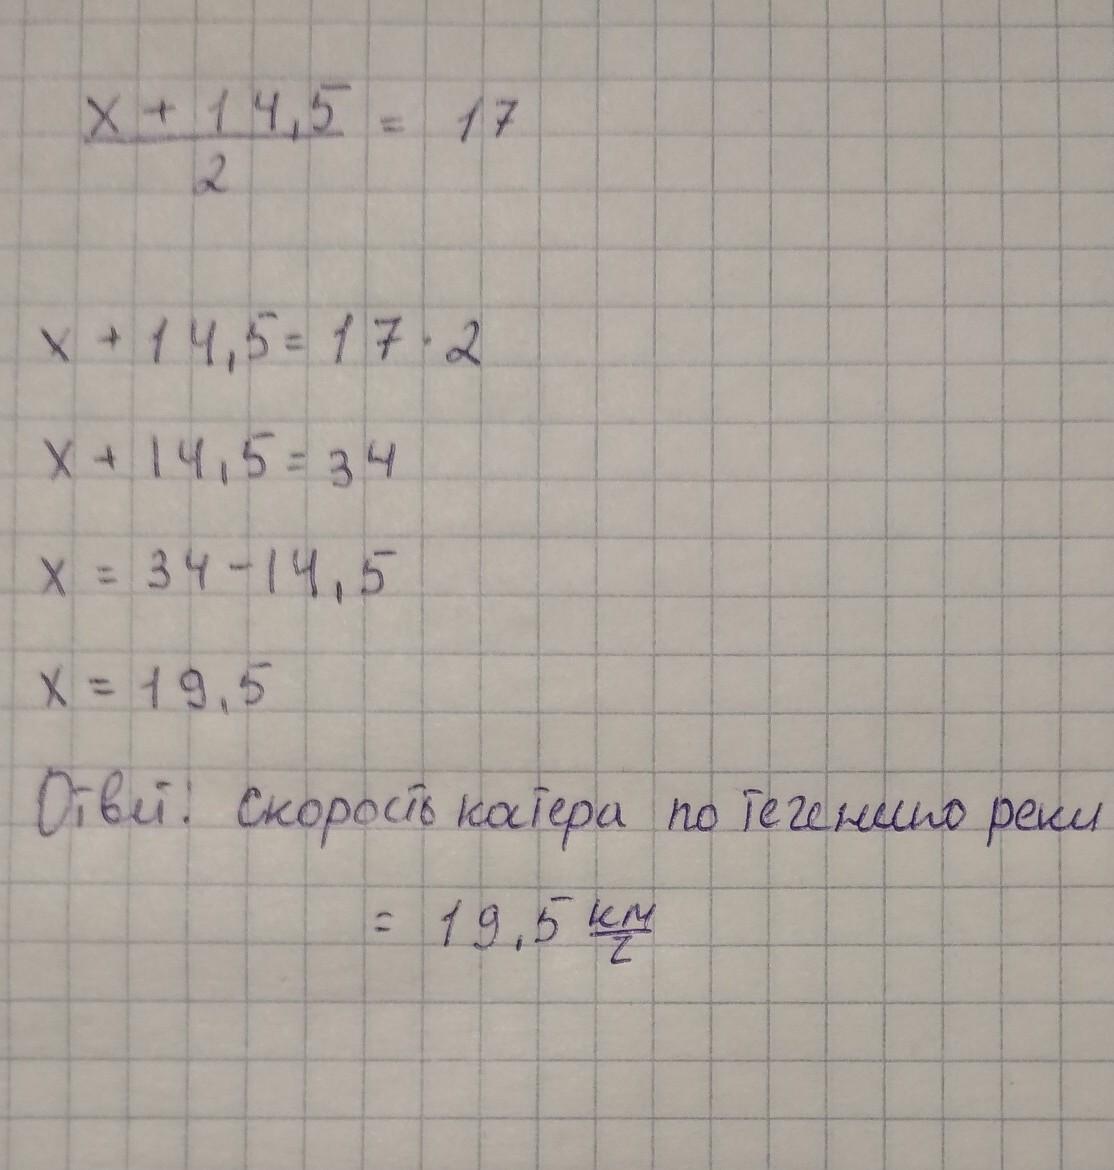 x + 14,5 = 17
2
x + 14,5 = 17 · 2
x + 14,5 = 34
x = 34 - 14,5
x = 19,5
Ответ: скорость катера по течению реки
= 19,5 км
ч